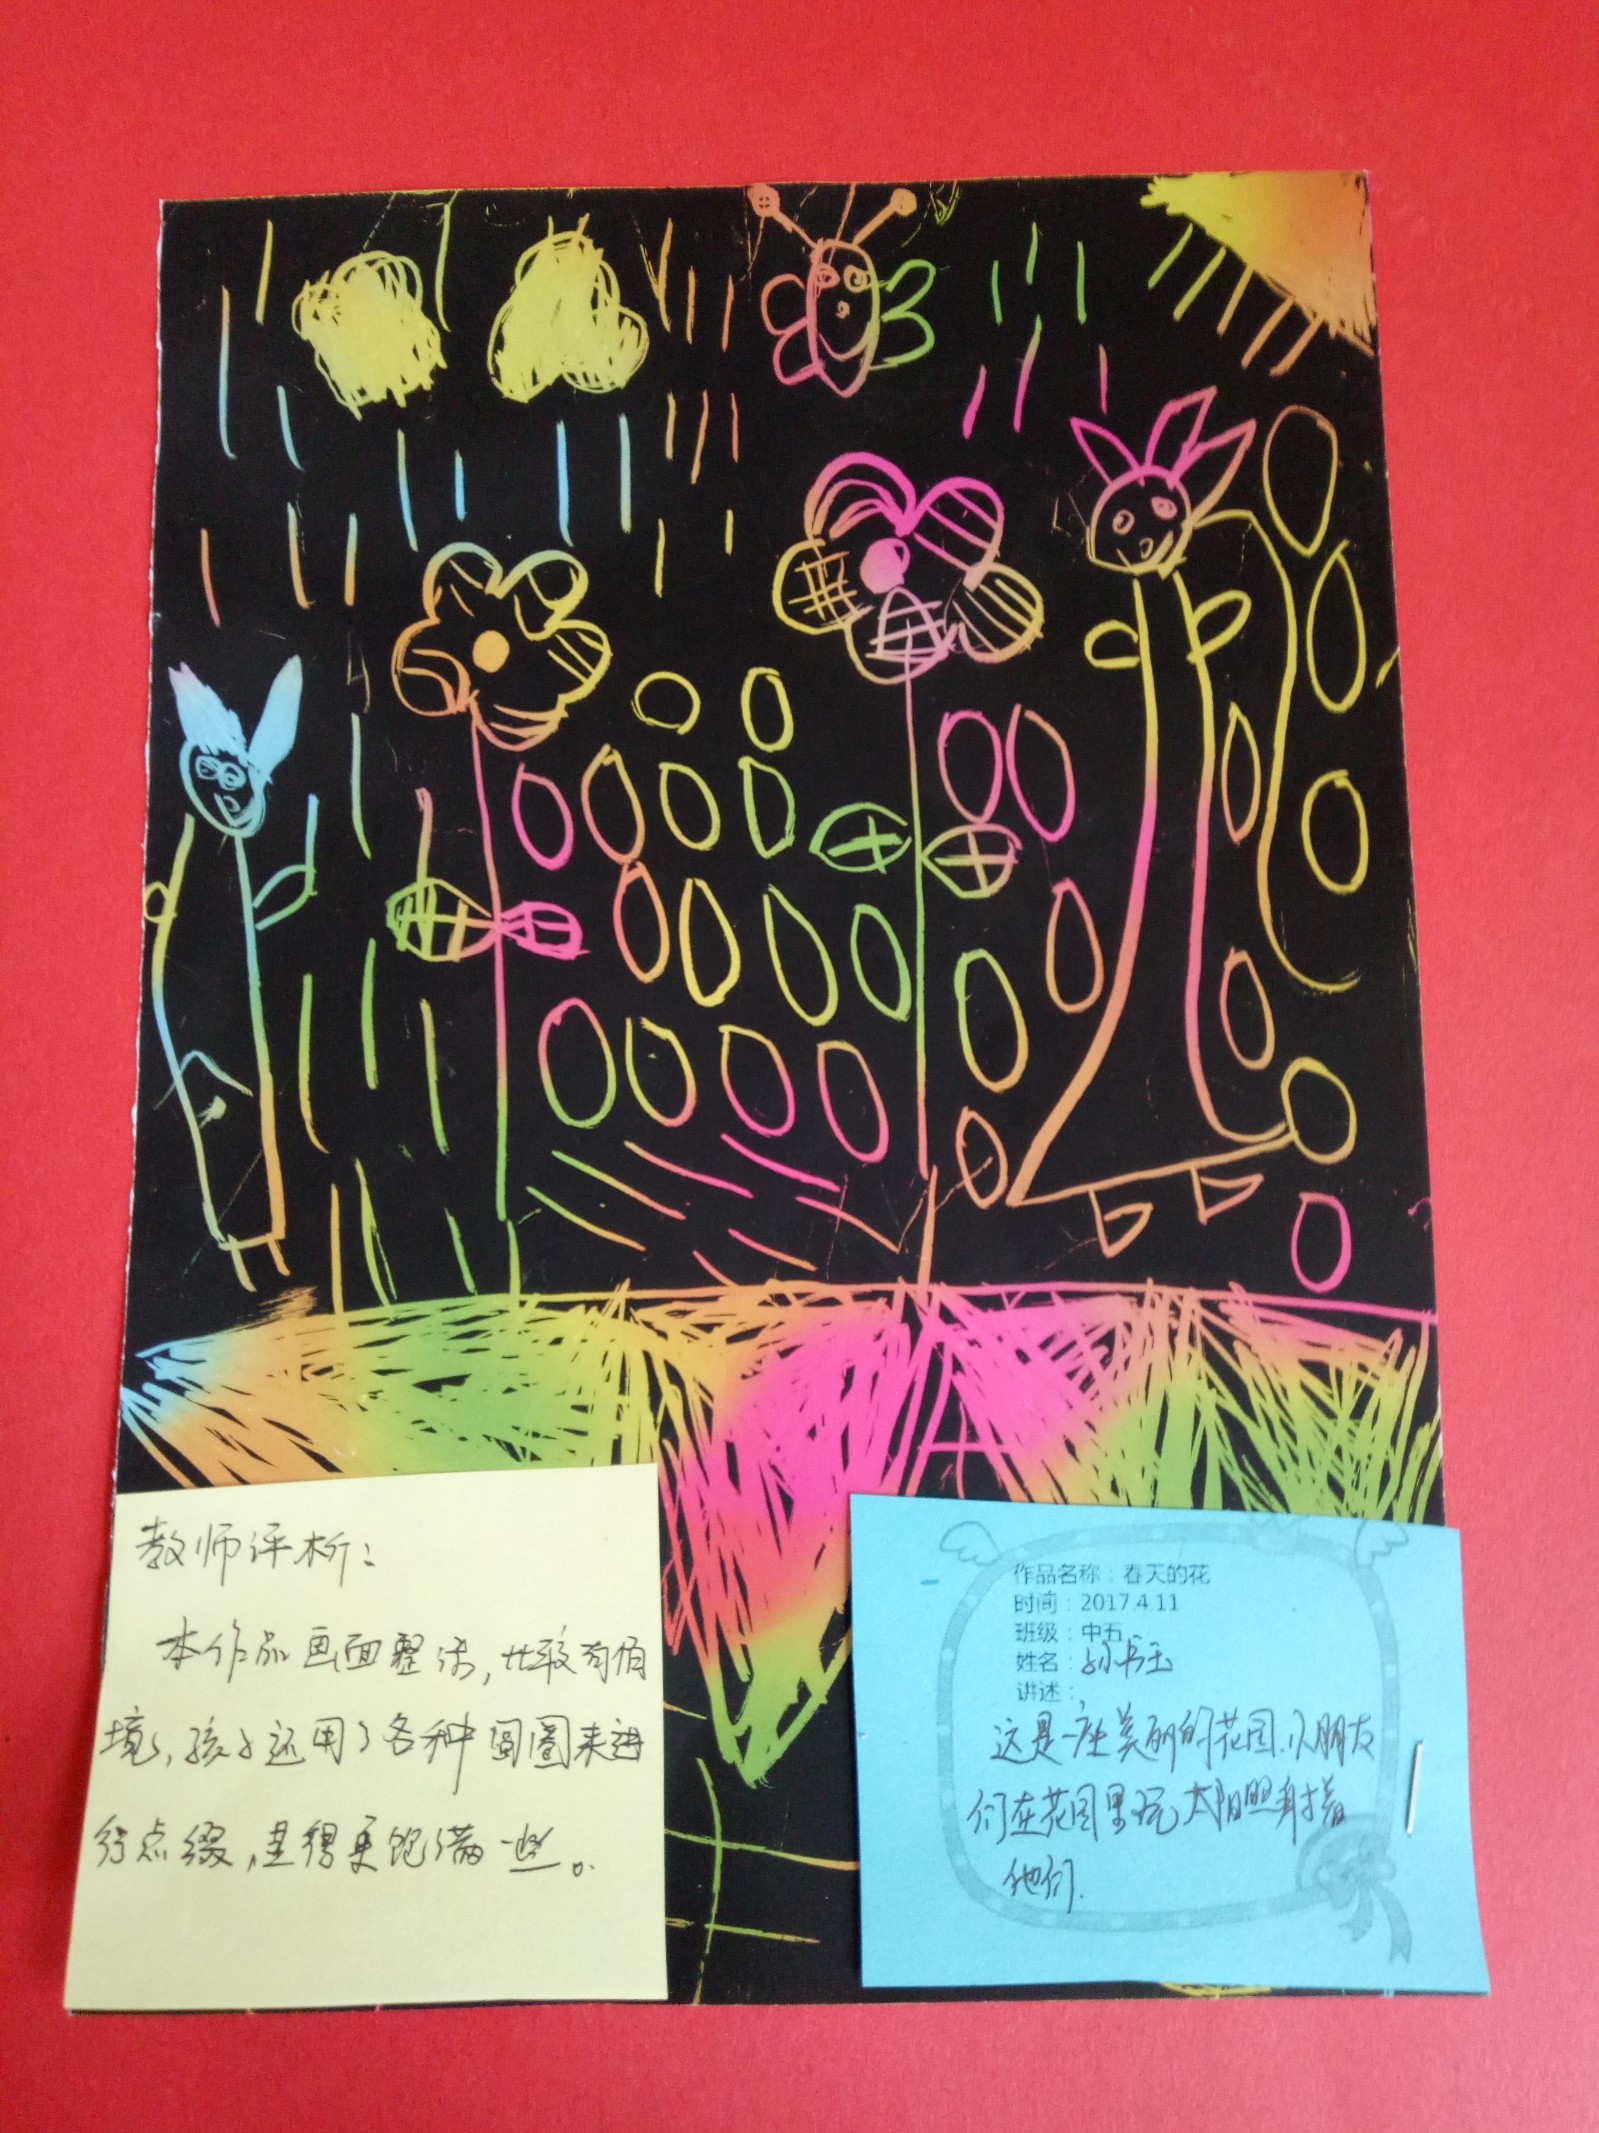 教师评析：
本作品画面整洁，比较有情
境，孩子运用了各种圆圈来进
行点缀，显得更饱满一些。
作品名称：春天的花
时间：2017.4.11
班级：中五
姓名：孙书玉
讲述：
这是一座美丽的花园，小朋友
们在花园里玩 太阳照射着
他们.